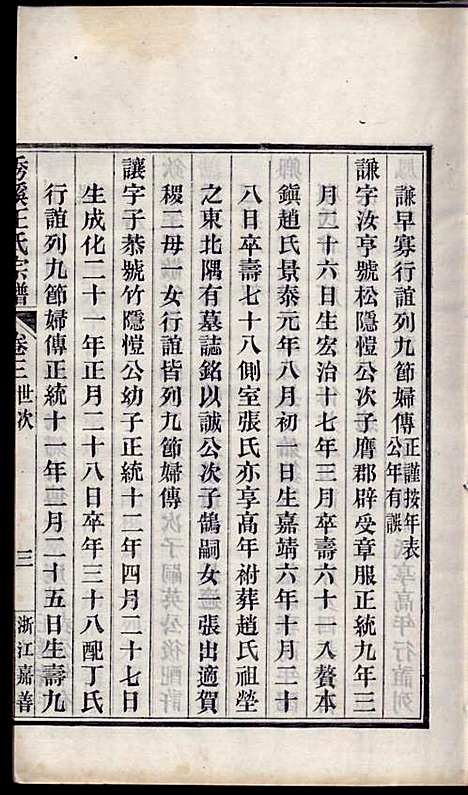 謙早寡行誼列九節婦傳正謹按年表
公年有誤
謙字汝亨號松隱愷公次子膺郡辟受章服正統九年三
月二十六日生宏治十七年三月卒壽六十一入贅本
鎭趙氏景泰元年八月初一日生嘉靖六年十月二十
八日卒壽七十八側室張氏亦享高年祔葬趙氏祖塋
之東北隅有墓誌銘以誠公次子鵠嗣女一張出適賀
稷工毋一女行誼皆列九節婦傳
讓字子恭號竹隱愷公幼子正統十二年四月二十七日
生成化二十一年正月二十八日卒年三十八配丁氏
行誼列九節婦傳正統十一年二月二十五日生壽九
秀溪王氏宗譜
卷三世次
三
浙江嘉善